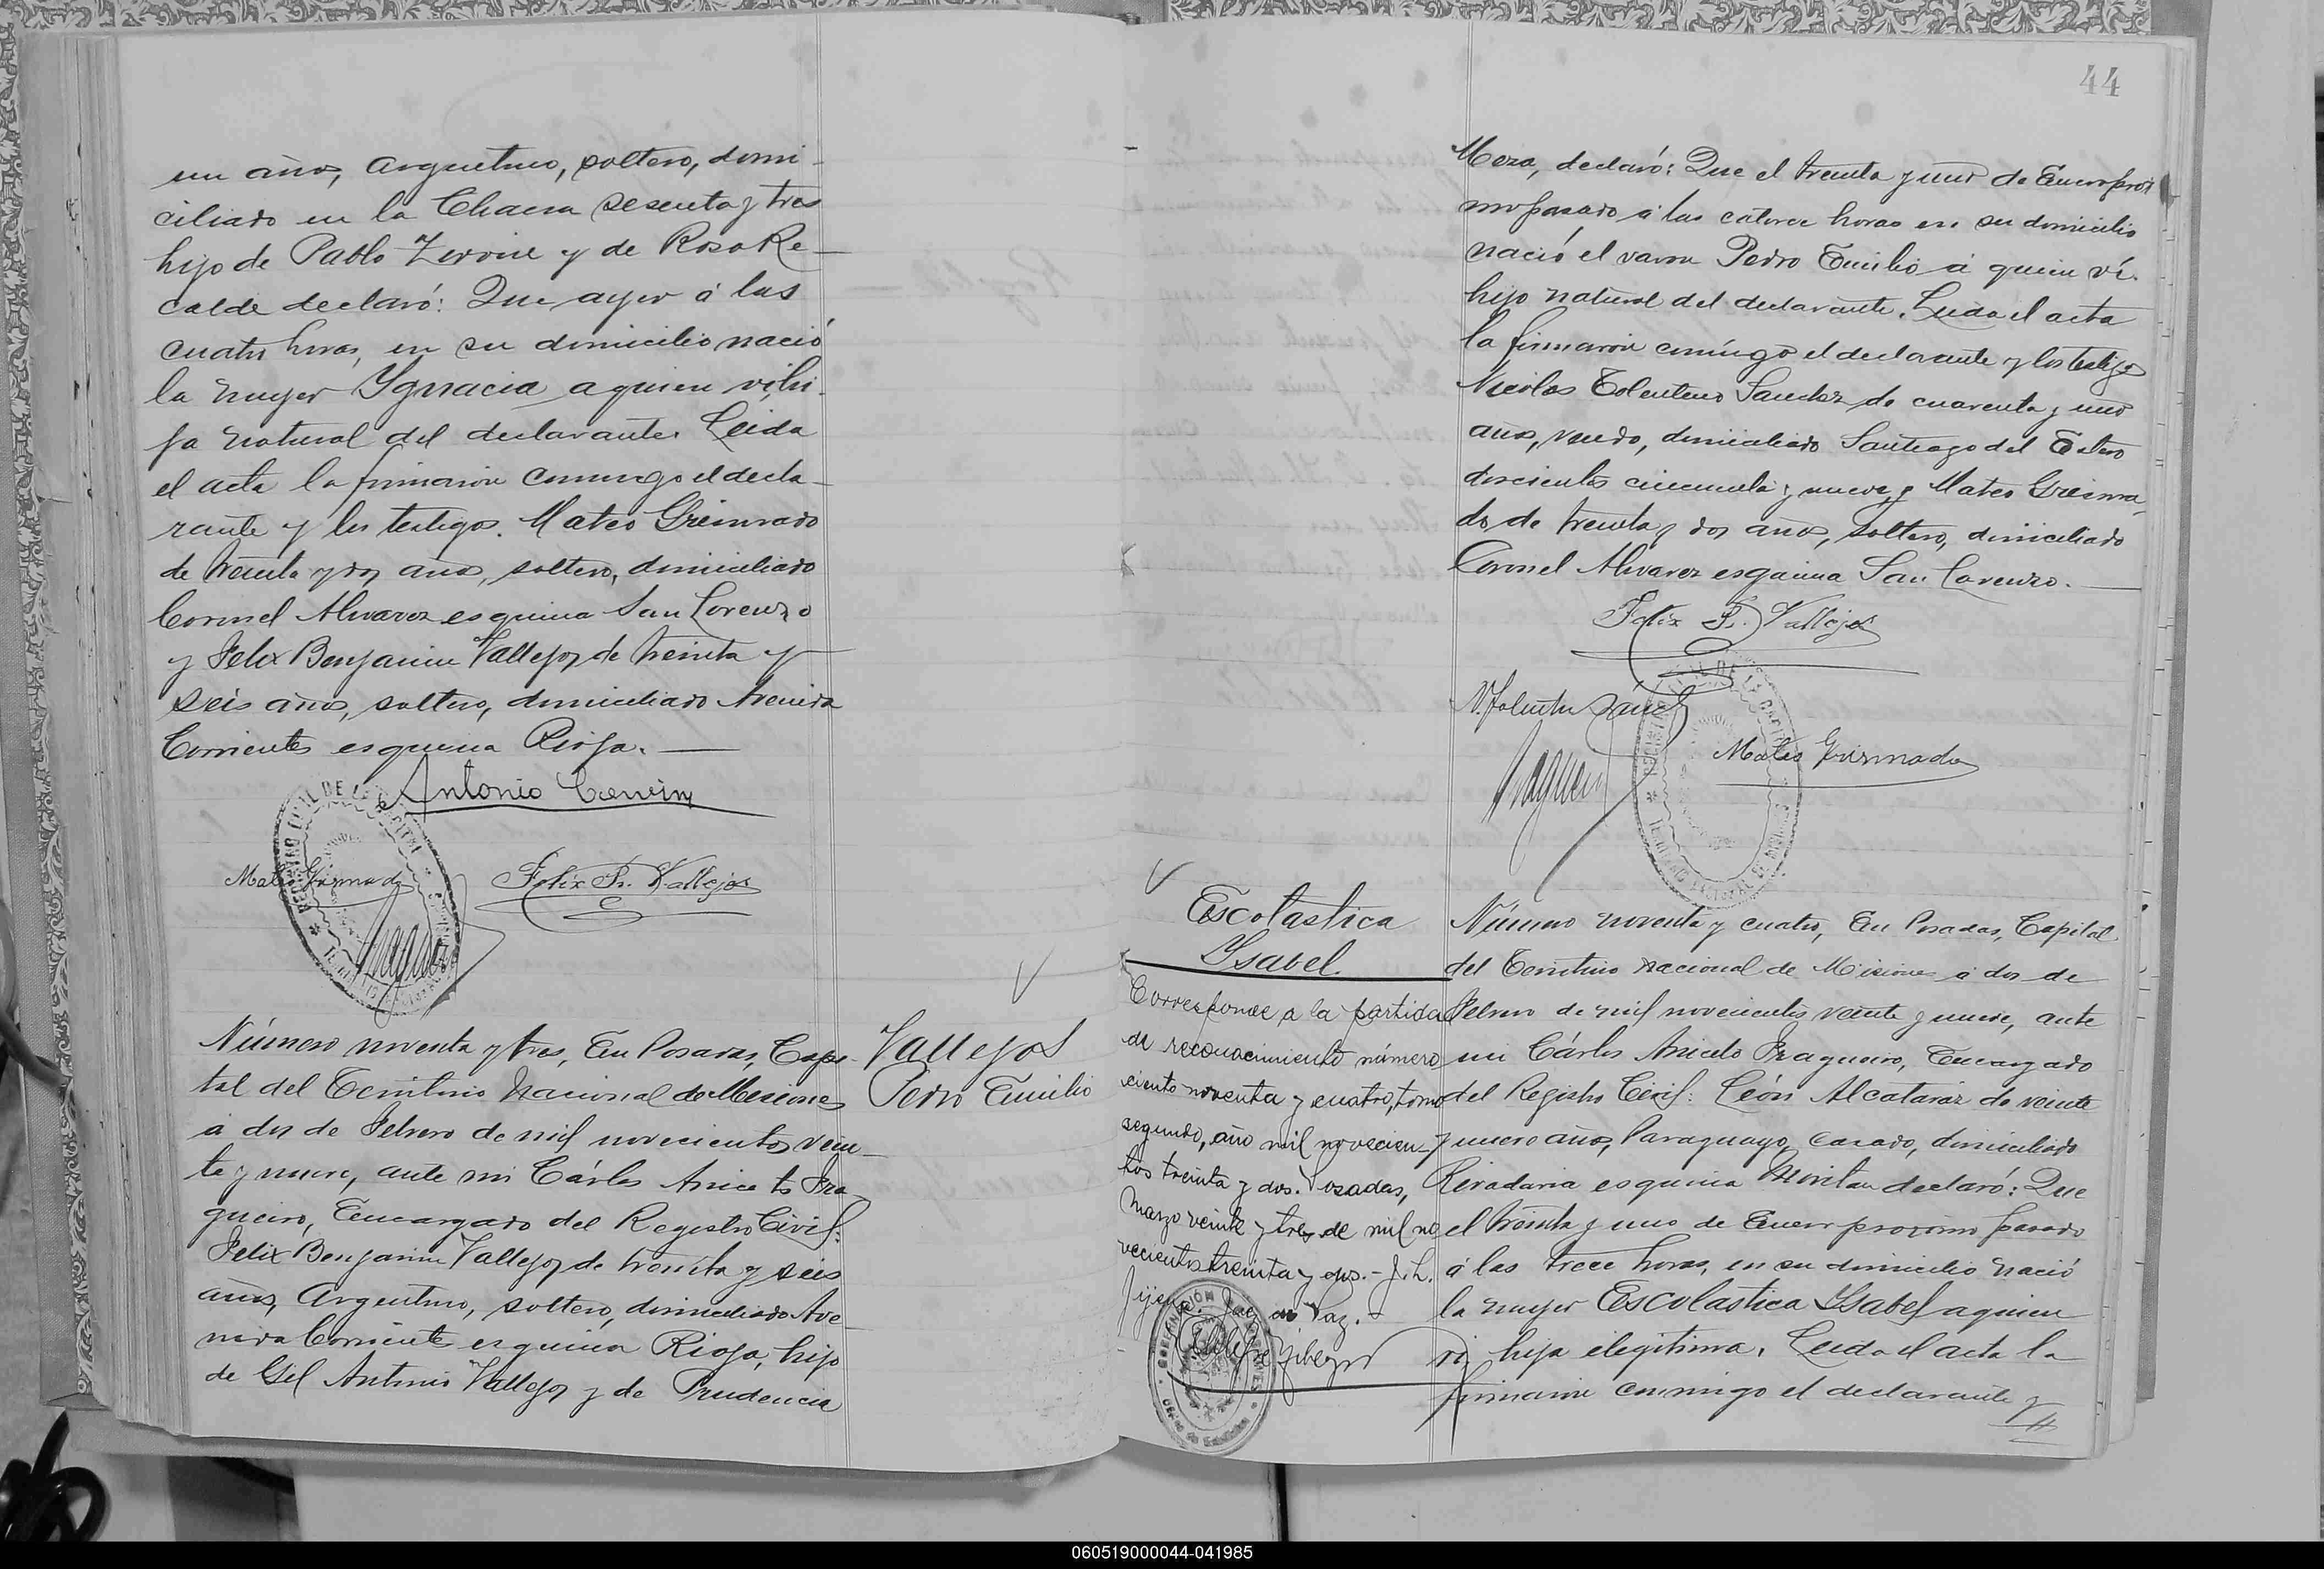 un años, argentino, soltero, domi-
ciliado en la Chacra sesenta y tres
hijo de Pablo y de Rosa Re-
calde declaró: Que ayer á las
cuatro horas, en su domicilio nació
la mujer Ygnacia a quien ví, hi-
ja natural del declarante. Leida
el acta la firmaron conmigo el decla-
rante y los testigos. Mateo Grisnado
de treinta y dos años, soltero, domiciliado
Coronel Alvarez esquina San Lorenzo
y Felix Benjamin Vallejos de treinta y
seis años, soltero, domiciliado Avenida
Corrientes esquina Rioja.
Antonio
Mateo Felix B. Vallejos
REGISTRO CIVIL DE LA CAPITAL
Número noventa y tres, En Posadas, Capi-
tal del Territorio Nacional de Misiones
á dos de Febrero de mil novecientos vein-
te y nueve, ante mi Cárlos Aniceto Fra-
gueiro, Encargado del Registro Civil:
Felix Benjamin Vallejos de treinta y seis
años, Argentino, soltero, domiciliado Ave-
nida Corrientes esquina Rioja, hijo
de Gil Antonio Vallejos y de Prudencia
Vallejos
Pedro Emilio
44
Meza, declaró: Que el treinta y uno de Enero próxi
mo pasado á las catorce horas en su domicilio
nació el varon Pedro Emilio á quien ví.
hijo natural del declarante. Leida el acta
la firmaron conmigo el declarante y los testigos
Nicolas Tolentino Sanchez de cuarenta y uno
años, viudo, domiciliado Santiago del Estero
doscientos cincuenta y nueve y Mateo Grisna-
do de treinta y dos años, soltero, domiciliado
Coronel Alvarez esquina San Lorenzo.
Felix B. Vallejos
N. Tolentin Sánch
Mateo Grisnado
Escolastica
Ysabel.
Corresponde a la partida
de reconocimiento número
ciento noventa y cuatro, tomo
segundo, año mil novecien-
tos treinta y dos. Posadas,
Marzo veinte y tres de mil no
vecientos treinta y dos. - J. L.
Juez de Paz.
Número noventa y cuatro, En Posadas, Capital
del Territorio Nacional de Misiones á dos de
Febrero de mil novecientos veinte y nueve, ante
mi Cárlos Aniceto Fragueiro, Encargado
del Registro Civil: León Alcataráz de veinte
y nueve años, Paraguayo, casado, domiciliado
Rivadavia esquina declaró: Que
el treinta y uno de Enero proximo pasado
á las trece horas, en su domicilio nació
la mujer Escolastica Ysabel a quien
ví, hija ilegitima. Leida el acta la
firmaron conmigo el declarante y
060519000044-041985